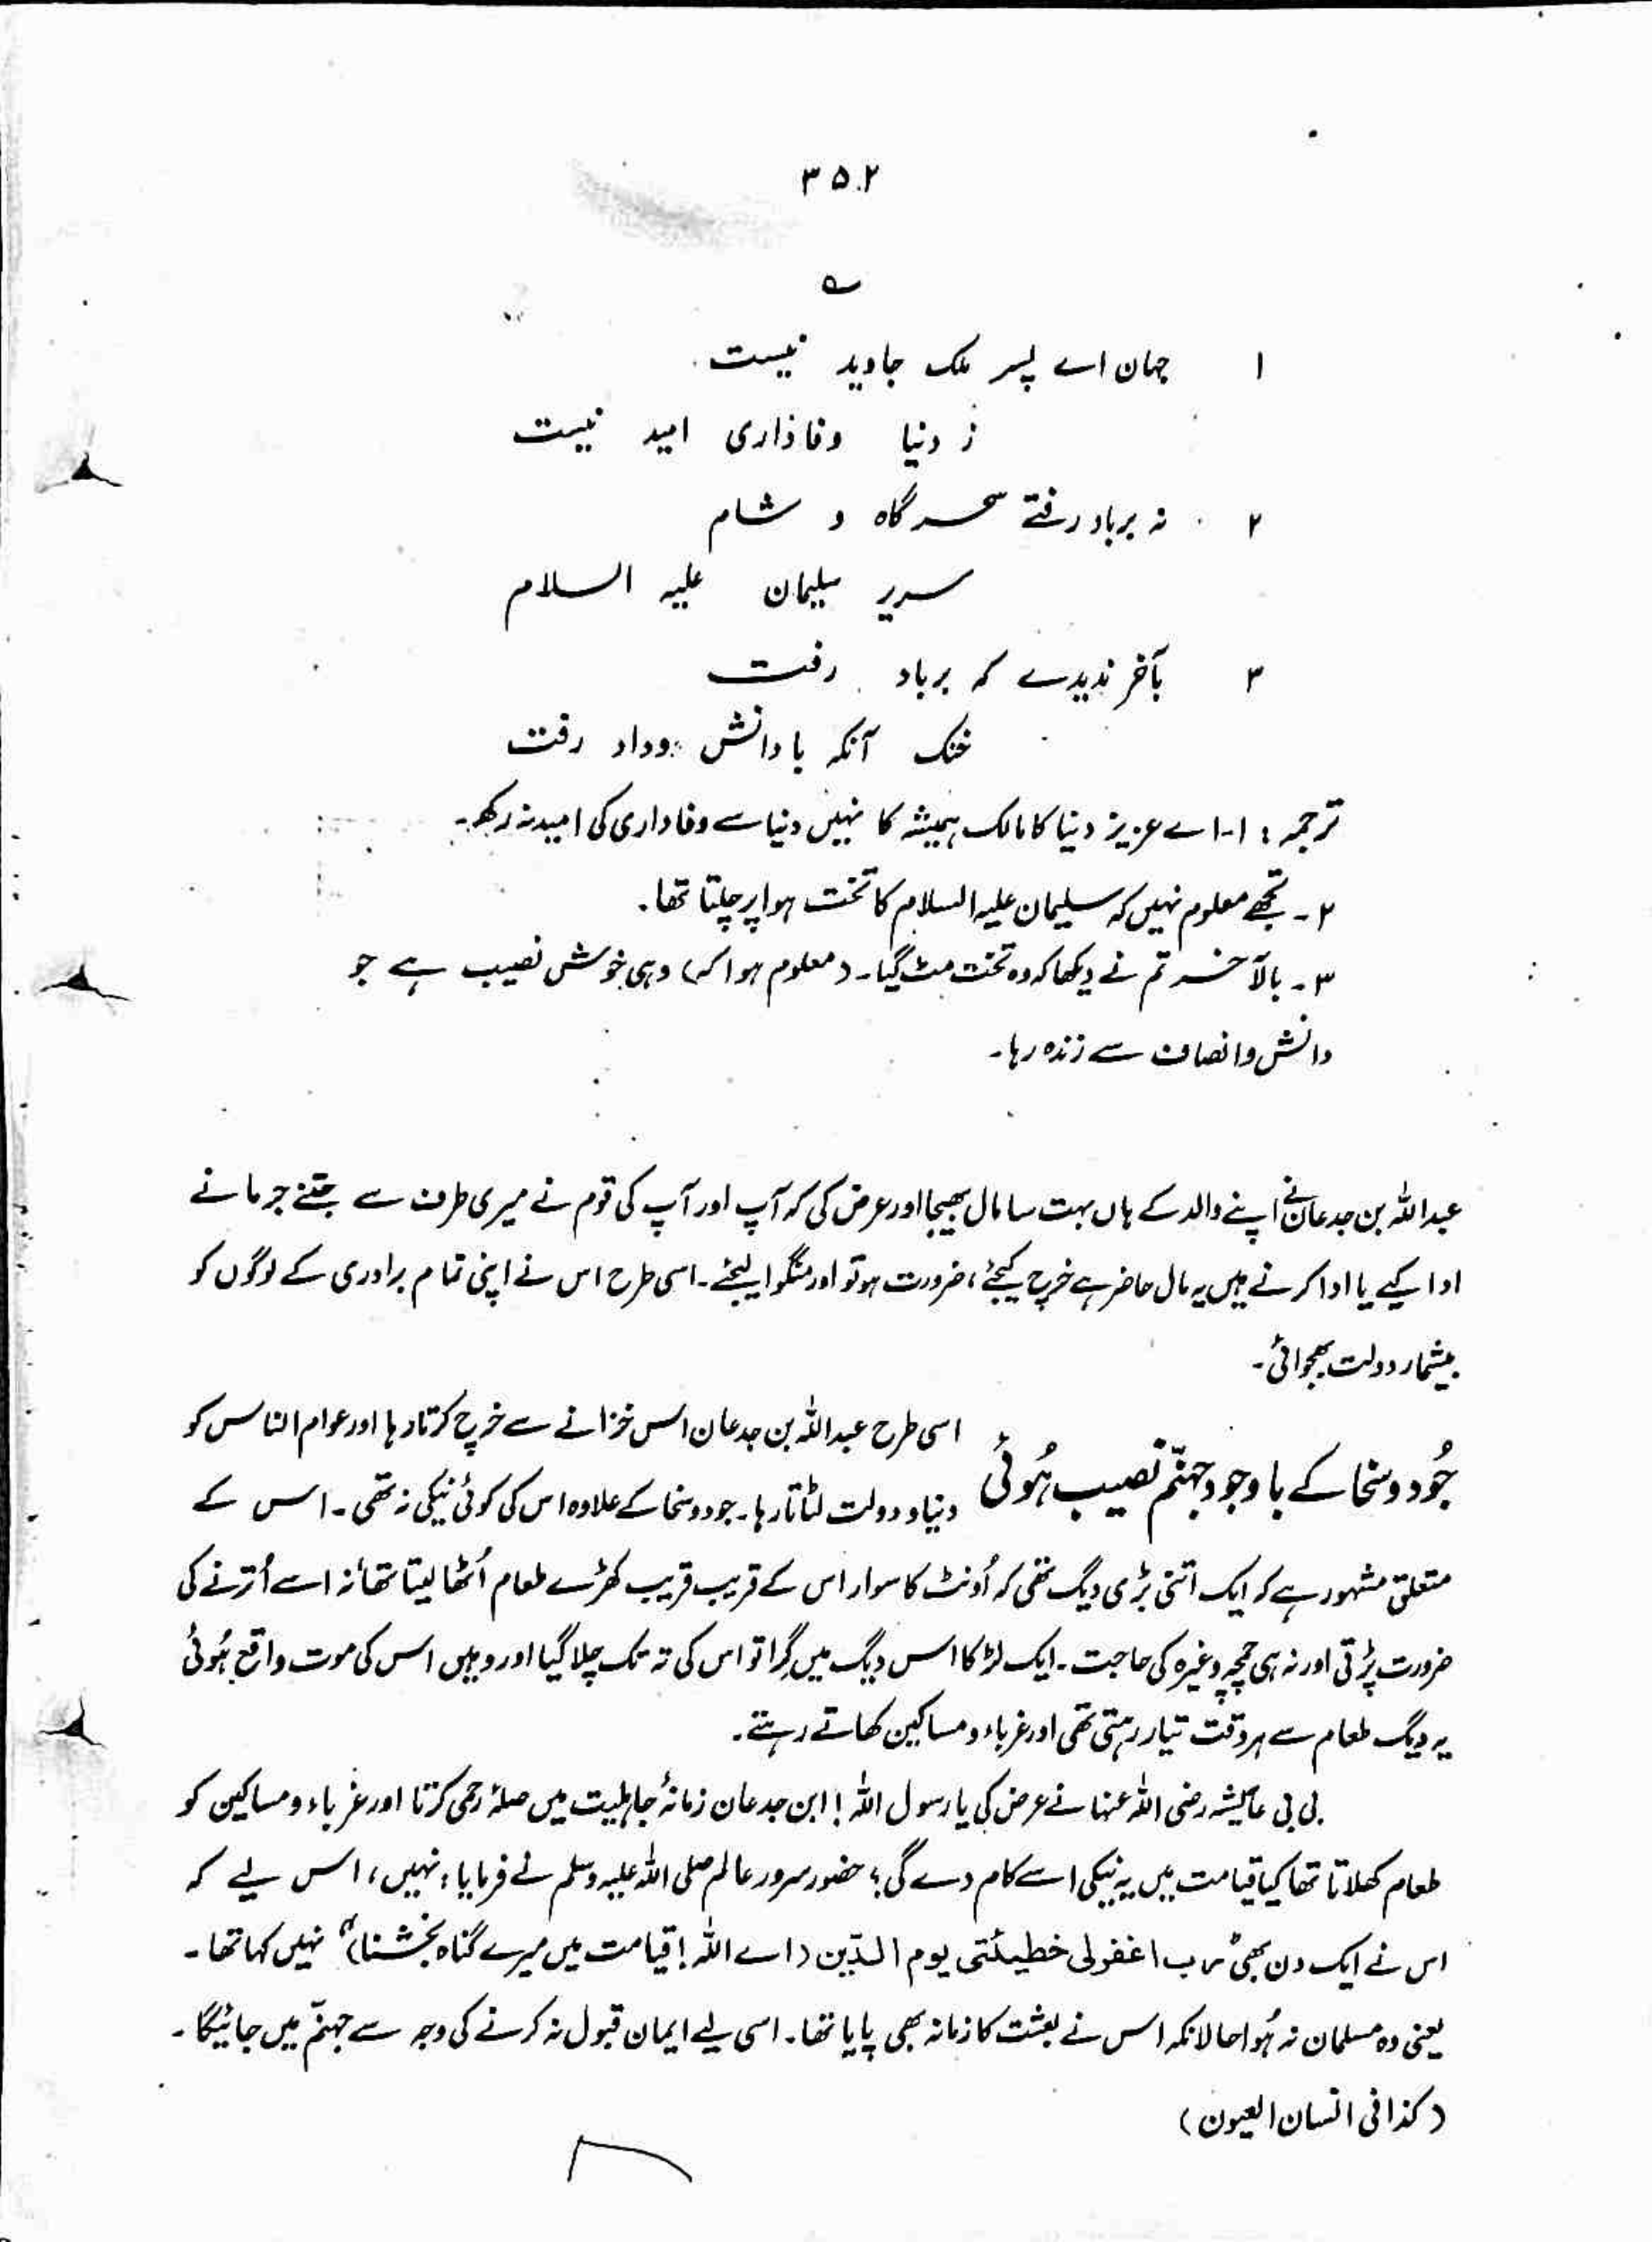 ۳۵۲
؎
۱ جہان اے پسر ملک جاوید نیست
ز دنیا وفاداری امید نیست
۲ نہ برباد رفتے سحرگاہ و شام
سریر سلیمان علیہ السلام
۳ بآخر ندیدے کہ برباد رفت
خنک آنکہ با دانش و داد رفت
ترجمہ : ۱۔ اے عزیز دنیا کا مالک ہمیشہ کا نہیں دنیا سے وفاداری کی امید نہ رکھ۔
۲۔ تجھے معلوم نہیں کہ سلیمان علیہ السلام کا تخت ہوا پر چلتا تھا۔
۳۔ بالآخر تم نے دیکھا کہ وہ تخت مٹ گیا۔ (معلوم ہوا کہ) وہی خوش نصیب ہے جو
دانش و انصاف سے زندہ رہا۔
عبداللہ بن جدعان نے اپنے والد کے ہاں بہت سا مال بھیجا اور عرض کی کہ آپ اور آپ کی قوم نے میری طرف سے جتنے جرمانے
ادا کیے یا ادا کرنے ہیں یہ مال حاضر ہے خرچ کیجئے، ضرورت ہو تو اور منگوا لیجئے۔ اسی طرح اس نے اپنی تمام برادری کے لوگوں کو
بیشمار دولت بھجوائی۔
جُود و سخا کے باوجود جہنّم نصیب ہُوئی
اسی طرح عبداللہ بن جدعان اس خزانے سے خرچ کرتا رہا اور عوام الناس کو
دنیا و دولت لٹاتا رہا۔ جود و سخا کے علاوہ اس کی کوئی نیکی نہ تھی۔ اس کے
متعلق مشہور ہے کہ ایک اتنی بڑی دیگ تھی کہ اُونٹ کا سوار اس کے قریب قریب کھڑے طعام اُٹھا لیتا تھا نہ اسے اُترنے کی
ضرورت پڑتی اور نہ ہی چمچہ وغیرہ کی حاجت۔ ایک لڑکا اس دیگ میں گِرا تو اس کی تہ تک چلا گیا اور وہیں اس کی موت واقع ہُوئی
یہ دیگ طعام سے ہر وقت تیار رہتی تھی اور غرباء و مساکین کھاتے رہتے۔
بی بی عائیشہ رضی اللہ عنہا نے عرض کی یا رسول اللہ! ابن جدعان زمانۂ جاہلیت میں صلۂ رحمی کرتا اور غرباء و مساکین کو
طعام کھلاتا تھا کیا قیامت میں یہ نیکی اسے کام دے گی؟ حضور سرور عالم صلی اللہ علیہ وسلم نے فرمایا: نہیں، اس لیے کہ
اس نے ایک دن بھی "رب اغفرلی خطیئتی یوم الدّین (اے اللہ! قیامت میں میرے گناہ بخشنا)" نہیں کہا تھا۔
یعنی وہ مسلمان نہ ہُوا حالانکہ اس نے بعثت کا زمانہ بھی پایا تھا۔ اسی لیے ایمان قبول نہ کرنے کی وجہ سے جہنّم میں جائیگا۔
(کذا فی انسان العیون)